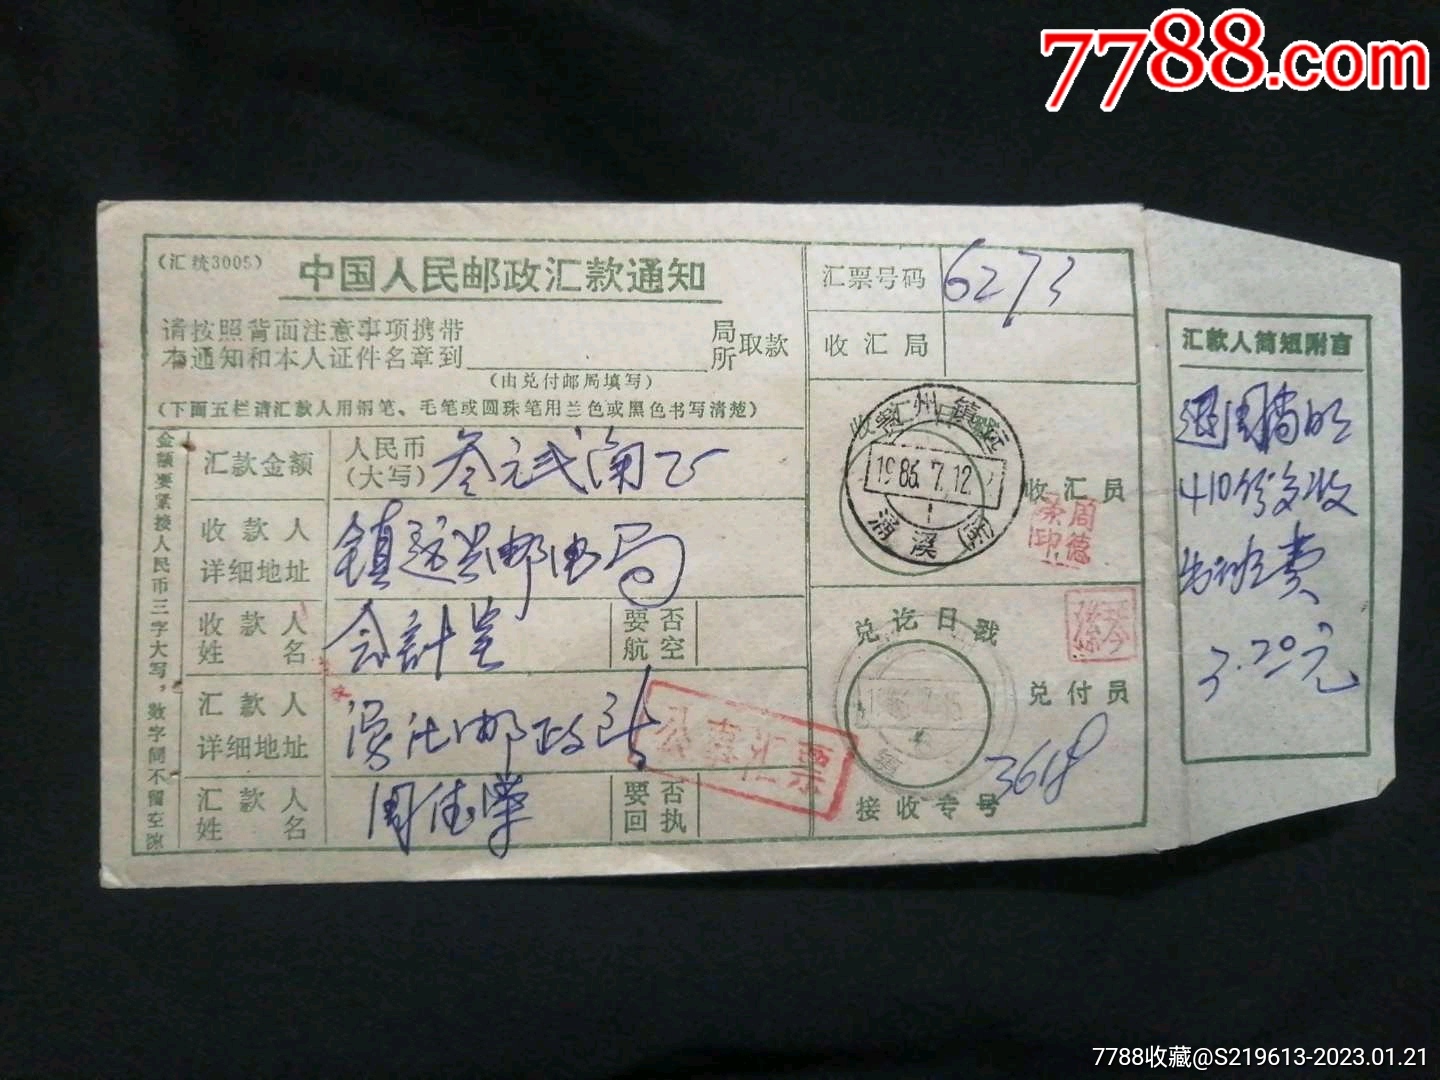 7788.com
(汇统3005)
中国人民邮政汇款通知
请按照背面注意事项携带
本通知和本人证件名章到
局
所
取款
(由兑付邮局填写)
(下面五栏请汇款人用钢笔、毛笔或圆珠笔用兰色或黑色书写清楚)
金额要紧接人民币三字大写，数字间不留空隙
汇款金额
人民币
(大写)
叁元贰角正
收款人
详细地址
镇远县邮电局
收款人
姓名
会計室
要否
航空
汇款人
详细地址
邮政
汇款人
姓名
周德荣
要否
回执
汇票号码
6273
收汇局
贵州镇远
1986.7.12
涌溪
收汇员
周德
荣印
兑讫日戳
兑付员
公事汇票
接收专号
3618
汇款人简短附言
410份多收
费
3.20元
7788收藏@S219613-2023.01.21